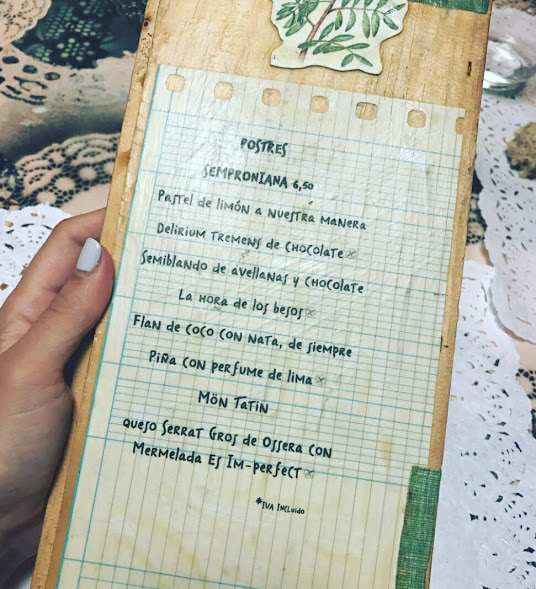 POSTRES
SEMPRONIANA 6,50
Pastel de limón a nuestra manera
Delirium tremens de chocolate
Semiblando de avellanas y chocolate
La hora de los besos
Flan de coco con nata, de siempre
Piña con perfume de lima
Mön Tatin
Queso Serrat Gros de Ossera con
Mermelada Es Im-perfect
*IVA incluido